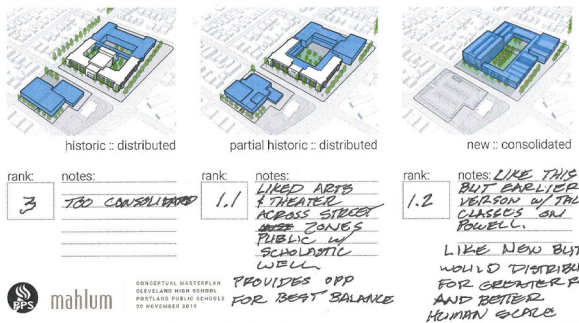 historic :: distributed
partial historic :: distributed
new :: consolidated
rank:
3
notes:
TOO CONSOLIDATED
rank:
1.1
notes:
LIKED ARTS
& THEATER
ACROSS STREET
ZONES
PUBLIC W/
SCHOLASTIC
WELL
PROVIDES OPP
FOR BEST BALANCE
rank:
1.2
notes: LIKE THIS
BUT EARLIER
VERSON W/ TAL
CLASSES ON
POWELL.
LIKE NEW BUT
WOULD DISTRIBU
FOR GREATER
AND BETTER
HUMAN SCALE
PPS
mahlum
CONCEPTUAL MASTERPLAN
CLEVELAND HIGH SCHOOL
PORTLAND PUBLIC SCHOOLS
20 NOVEMBER 2019